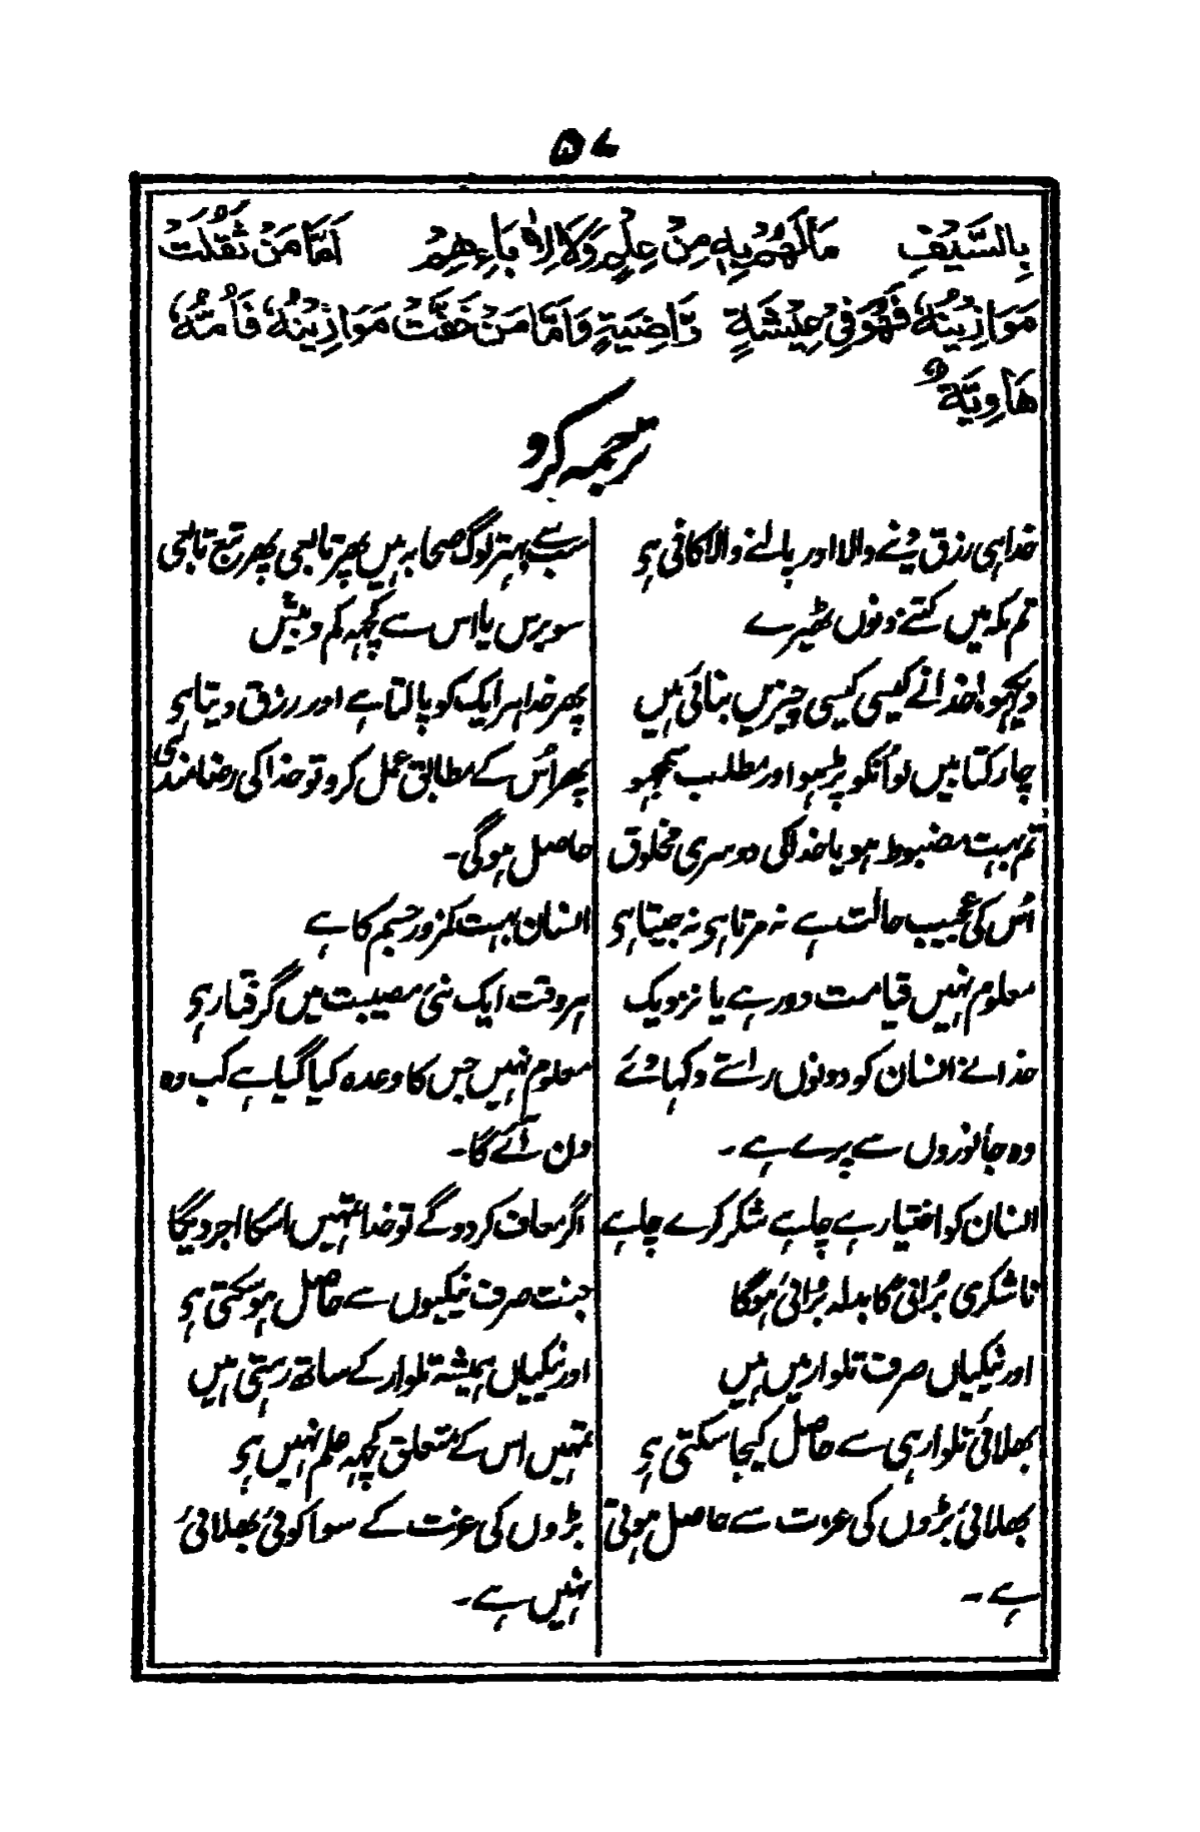 ۵۷
بِالسَّيْفِ مَا لَهُمْ بِهٖ مِنْ عِلْمٍ وَّلَا لِاٰبَاءِهِمْ اَمَّا مَنْ ثَقُلَتْ
مَوَازِيْنُهٗ فَهُوَ فِيْ عِيْشَةٍ رَّاضِيَةٍ وَاَمَّا مَنْ خَفَّتْ مَوَازِيْنُهٗ فَاُمُّهٗ
هَاوِيَةٌ
ترجمہ کرو
خدا ہی رزق دینے والا اور پالنے والا کافی ہے
تم مکہ میں کتنے دنوں ٹھیرے
دیکھو! خدا نے کیسی کیسی چیزیں بنائی ہیں
چار کتابیں لو اُنکو پڑہو اور مطلب سمجھو
تم بہت مضبوط ہو یا خدا کی دوسری مخلوق
اُس کی عجیب حالت ہے نہ مرتا ہے نہ جیتا ہے
معلوم نہیں قیامت دور ہے یا نزدیک
خدا نے انسان کو دونوں راستے دکہائے
وہ جانوروں سے پرے ہے۔
انسان کو اختیار ہے چاہے شکر کرے چاہے
ناشکری بُرائی کا بدلہ بُرائی ہوگا
اور نیکیاں صرف تلوار میں ہیں
بھلائی تلوار ہی سے حاصل کیجا سکتی ہے
بھلائی بڑوں کی عزت سے حاصل ہوتی
ہے ۔
سب سے بہتر لوگ صحابہ ہیں پھر تابعی پھر تبع تابعی
سو برس یا اس سے کچھہ کم و بیش
پھر خدا ہر ایک کو پالتا ہے اور رزق دیتا ہے
پھر اُس کے مطابق عمل کرو تو خدا کی رضامندی
حاصل ہوگی۔
انسان بہت کمزور جسم کا ہے
ہر وقت ایک نئی مصیبت میں گرفتار ہے
معلوم نہیں جس کا وعدہ کیا گیا ہے کب وہ
دن آئے گا۔
اگر معاف کر دو گے تو خدا تمہیں اسکا اجر دیگا
جنت صرف نیکیوں سے حاصل ہو سکتی ہے
اور نیکیاں ہمیشہ تلوار کے ساتھ رہتی ہیں
تمہیں اس کے متعلق کچھہ علم نہیں ہے
بڑوں کی عزت کے سوا کوئی بھلائی
نہیں ہے۔